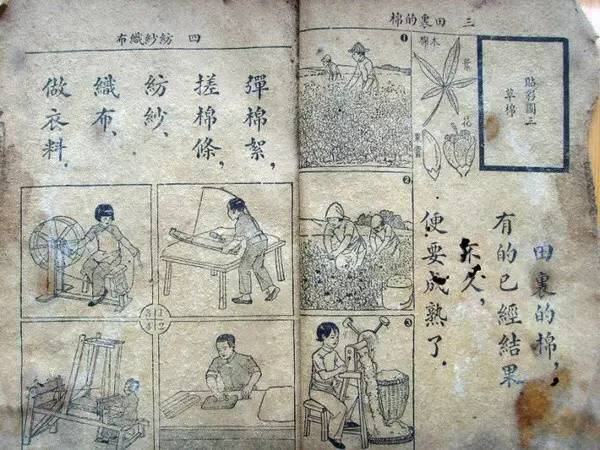 三 田裏的棉
貼彩圖三
草棉
葉
花
果實
田裏的棉，
有的已經結果，
不久，
便要成熟了．
1
2
3
四 紡紗織布
彈棉絮，
搓棉條，
紡紗、
織布、
做衣料．
3 1
4 2